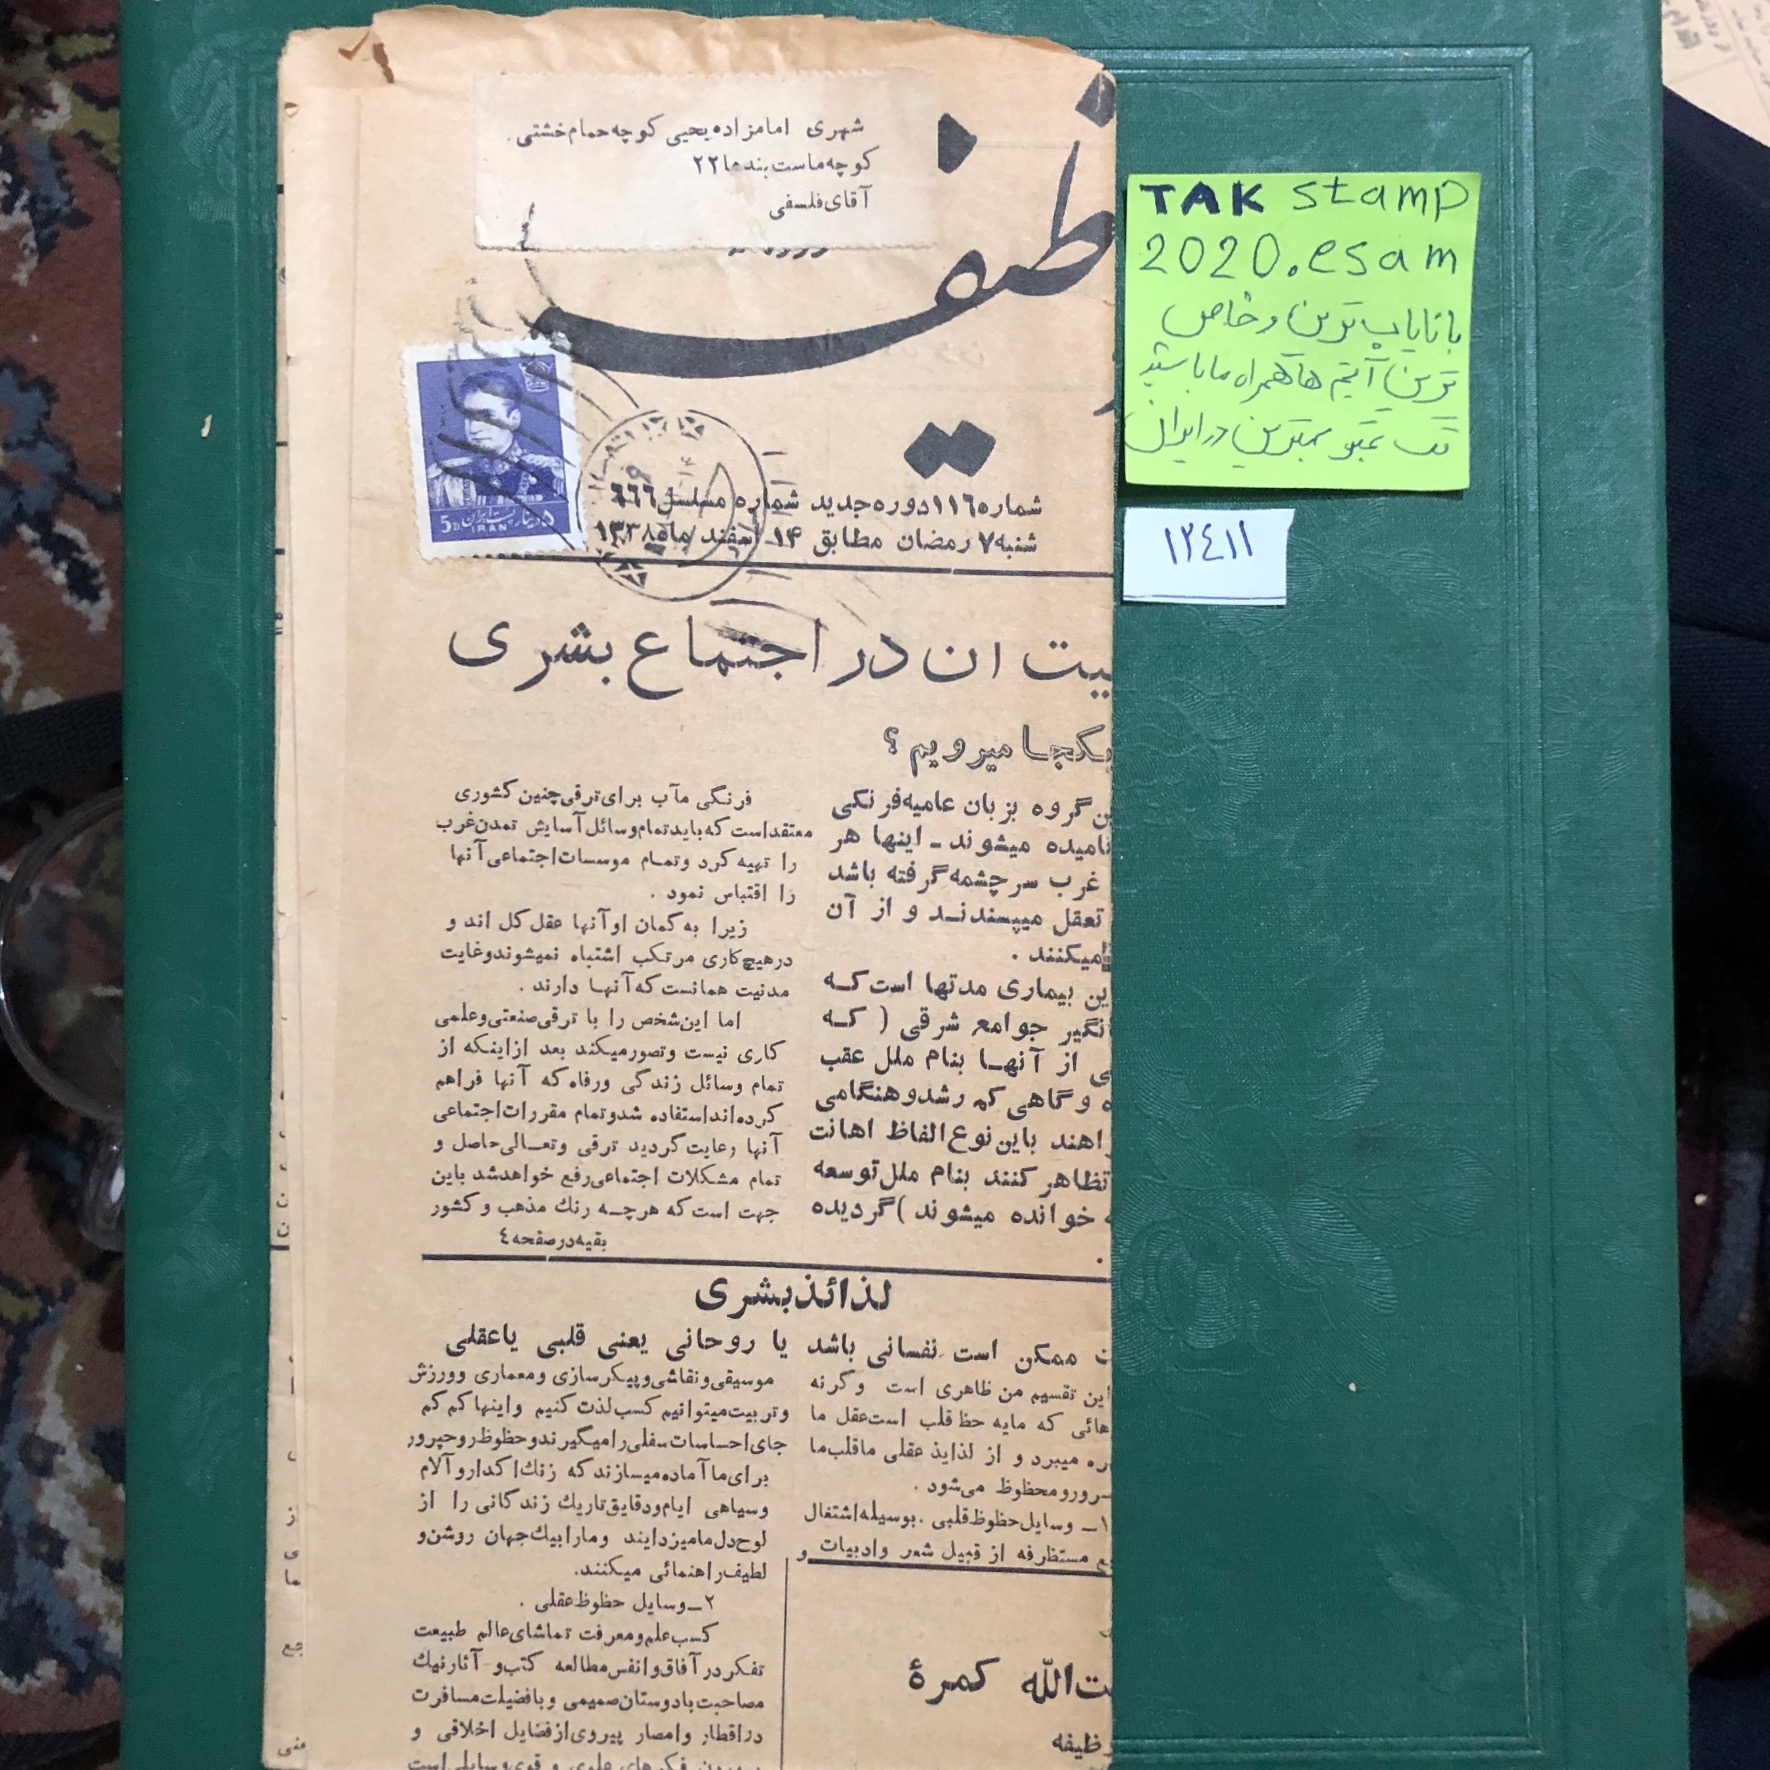 شهری امامزاده یحیی کوچه حمام خشتی
کوچه ماست بندها ۲۲
آقای فلسفی
TAK Stamp
2020.esam
با نایاب ترین و خاص
ترین آیتم ها همراه ما باشید
تک تمبر بهترین در ایران
۱۲۴۱۱
5D
IRAN
شماره ۱۱۶ دوره جدید شماره مسلسل ۶۶۶
شنبه ۷ رمضان مطابق ۱۴ اسفند ماه ۱۳۳۸
یت آن در اجتماع بشری
بکجا میرویم ؟
ن گروه بزبان عامیه فرنگی
نامیده میشوند ـ اینها هر
غرب سرچشمه گرفته باشد
تعقل میپسندند و از آن
میکنند .
ین بیماری مدتها است که
نگیر جوامع شرقی ( که
ی از آنها بنام ملل عقب
ه و گاهی کم رشد و هنگامی
اهند باین نوع الفاظ اهانت
تظاهر کنند بنام ملل توسعه
خوانده میشوند ) گردیده
فرنگی مآب برای ترقی چنین کشوری
معتقد است که باید تمام وسائل آسایش تمدن غرب
را تهیه کرد و تمام موسسات اجتماعی آنها
را اقتباس نمود .
زیرا به گمان او آنها عقل کل اند و
در هیچ کاری مرتکب اشتباه نمیشوند و غایت
مدنیت همانست که آنها دارند .
اما این شخص را با ترقی صنعتی و علمی
کاری نیست و تصور میکند بعد از اینکه از
تمام وسائل زندگی و رفاه که آنها فراهم
کرده اند استفاده شد و تمام مقررات اجتماعی
آنها رعایت گردید ترقی و تعالی حاصل و
تمام مشکلات اجتماعی رفع خواهد شد باین
جهت است که هر چه رنگ مذهب و کشور
بقیه در صفحه ٤
لذائذ بشری
ت ممکن است نفسانی باشد یا روحانی یعنی قلبی یا عقلی
این تقسیم من ظاهری است وگرنه
هائی که مایه حظ قلب است عقل ما
ره میبرد و از لذایذ عقلی ما قلب ما
سرور و محظوظ می شود .
۱ـ وسایل حظوظ قلبی . بوسیله اشتغال
ع مستظرفه از قبیل شعر و ادبیات و
موسیقی و نقاشی و پیکر سازی و معماری و ورزش
و تربیت میتوانیم کسب لذت کنیم و اینها کم کم
جای احساسات سفلی را میگیرند و حظوظ روحپرور
برای ما آماده میسازند که زنگ اکدار و آلام
وسیاهی ایام و دقایق تاریک زندگانی را از
لوح دل ما میزدایند و ما را بیک جهان روشن و
لطیف راهنمائی میکنند.
۲ـ وسایل حظوظ عقلی .
کسب علم و معرفت تماشای عالم طبیعت
تفکر در آفاق و انفس مطالعه کتب و آثار نیک
مصاحبت با دوستان صمیمی و با فضیلت مسافرت
در اقطار و امصار پیروی از فضایل اخلاقی و
ت الله کمرۀ
وظیفه